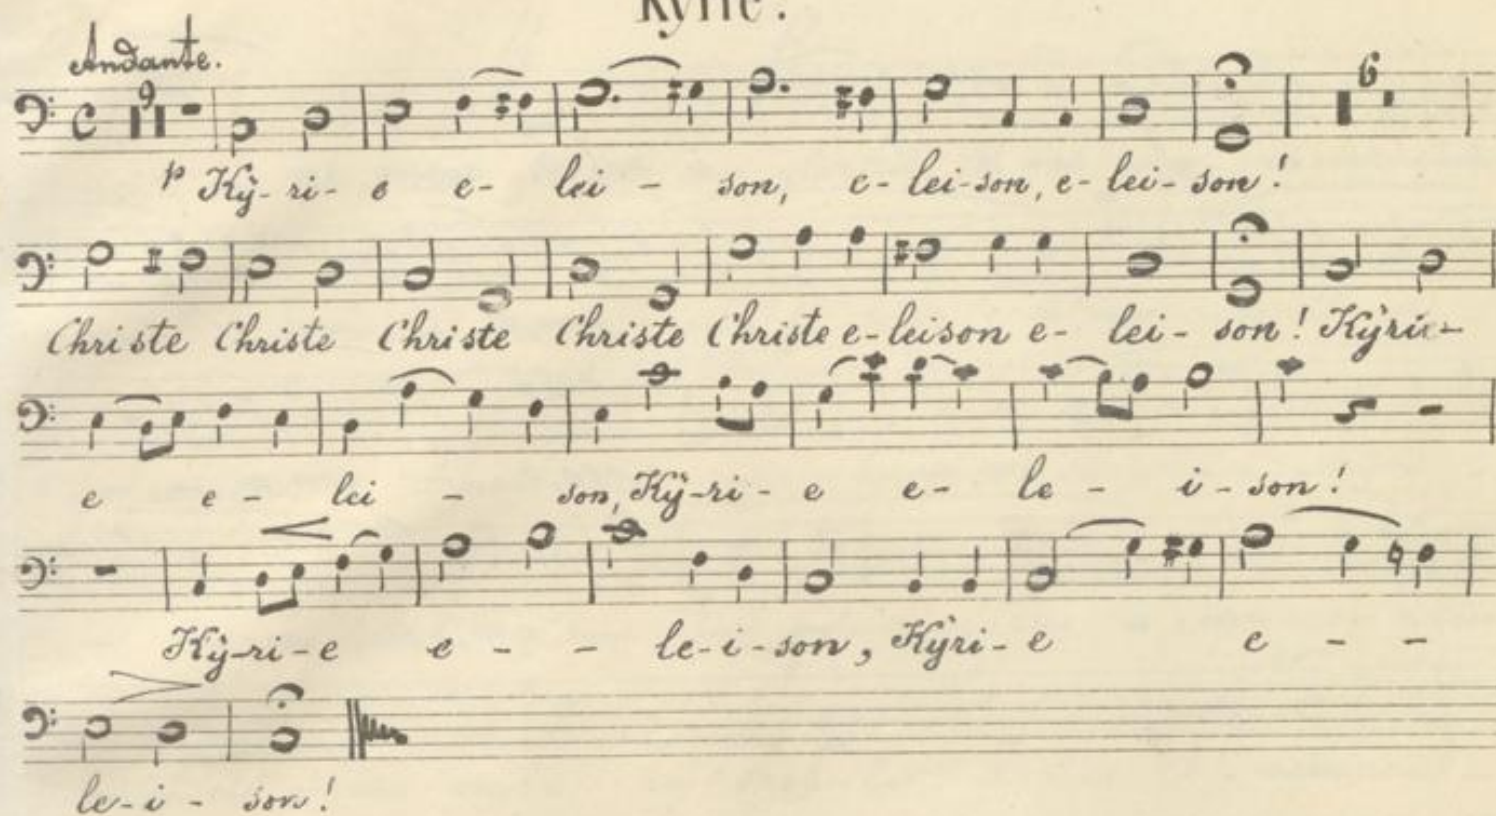 Kyrie.
Andante.
9
6
p Kÿ-ri-e e- lei - son, e-lei-son, e-lei-son!
Christe Christe Christe Christe Christe e-leison e- lei- son! Kÿrie-
e e- lei - son, Kÿ-ri-e e- le - i-son!
Kÿ-ri-e e - - le-i-son, Kÿri-e e - -
le-i - son!